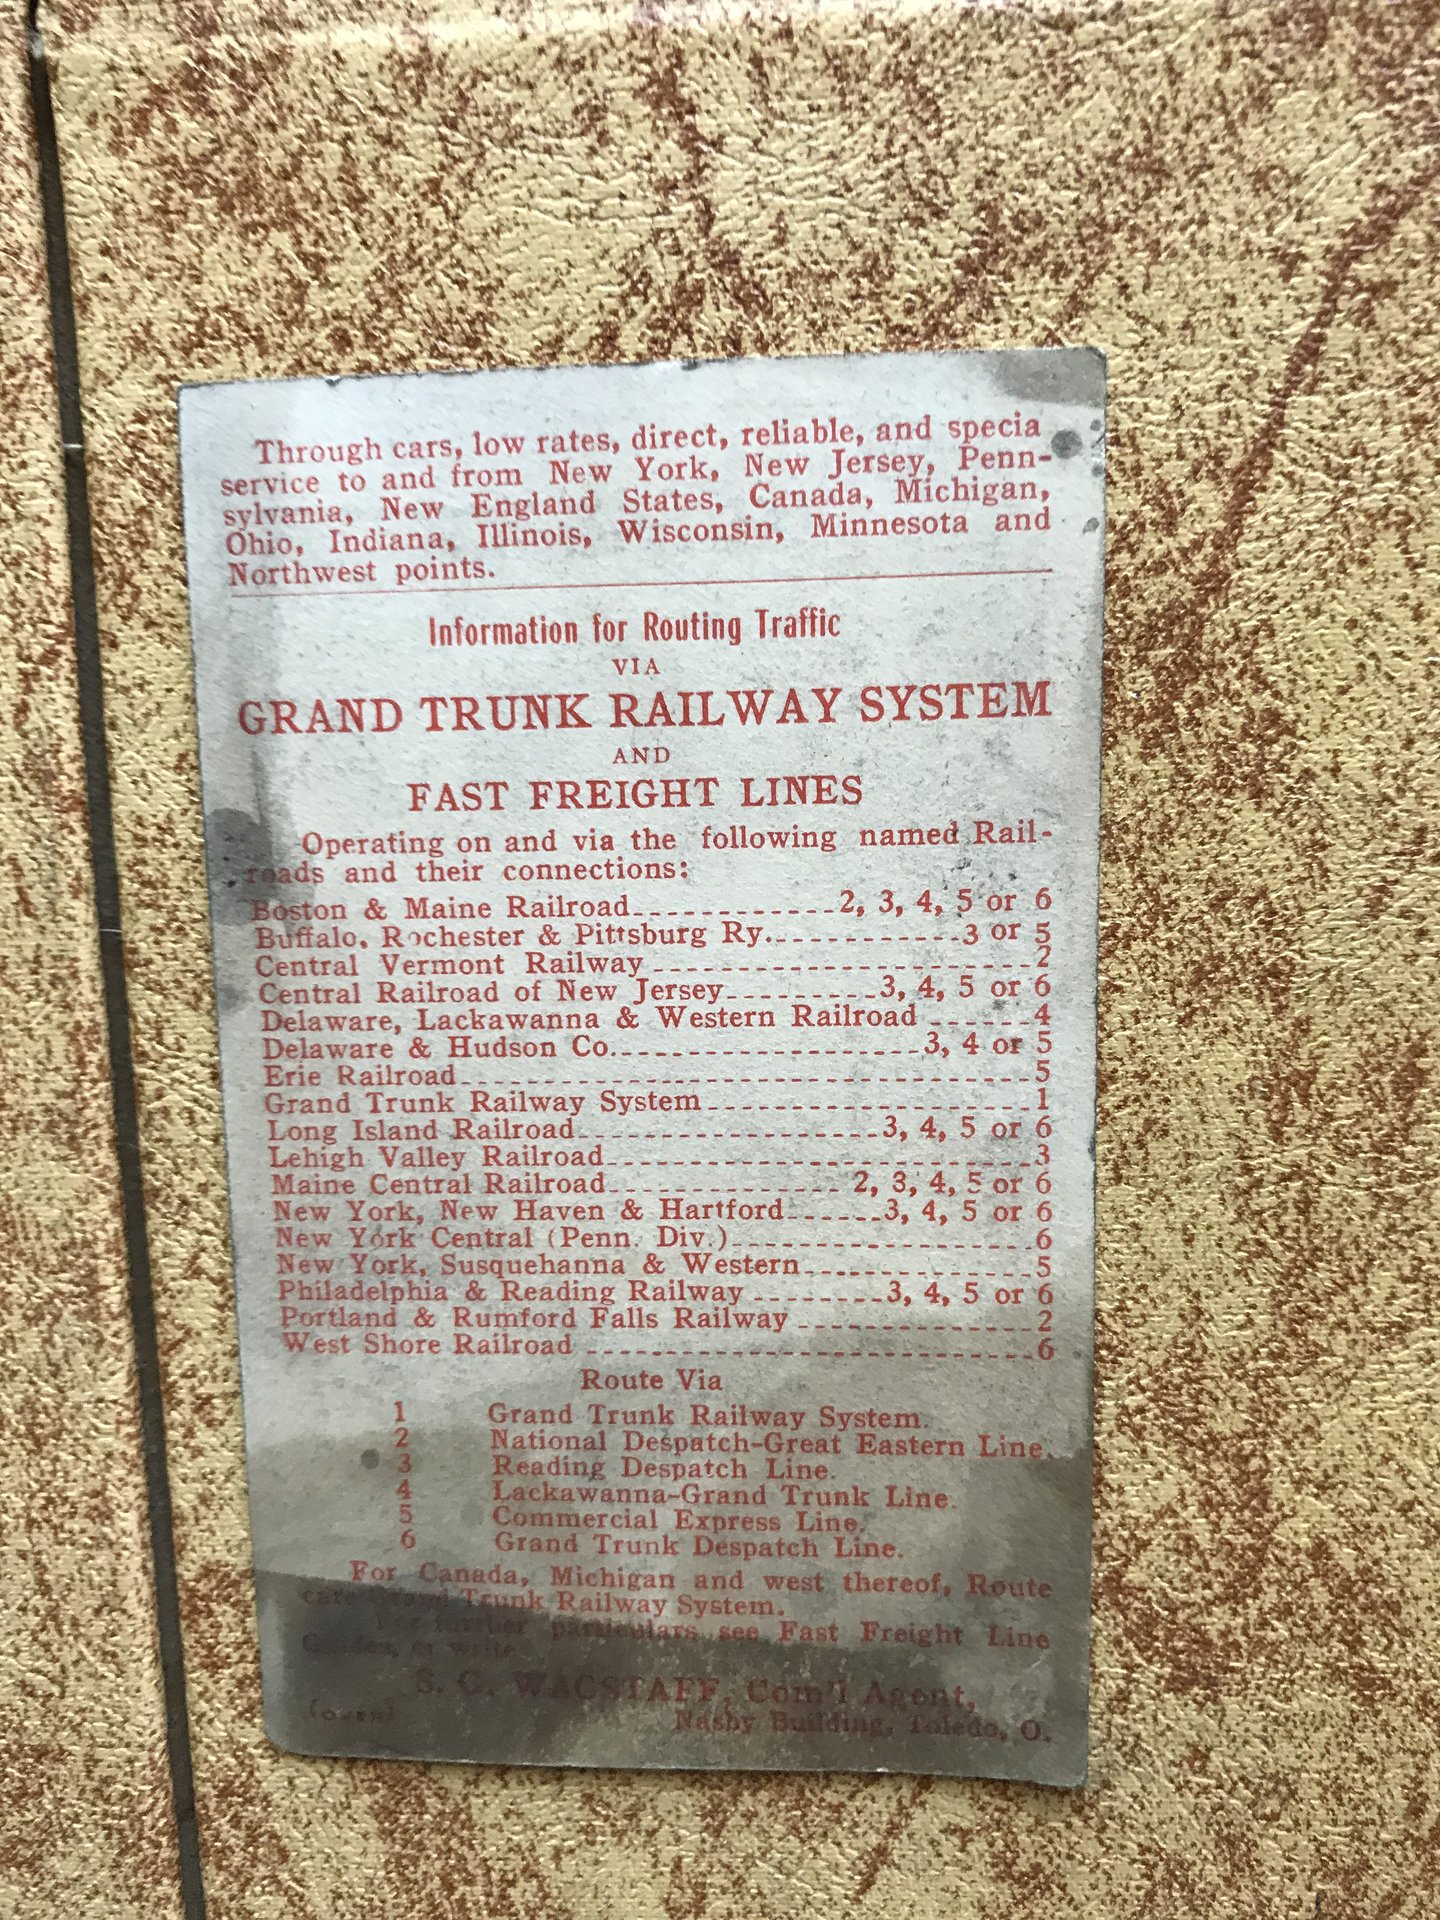 Through cars, low rates, direct, reliable, and specia
service to and from New York, New Jersey, Penn-
sylvania, New England States, Canada, Michigan,
Ohio, Indiana, Illinois, Wisconsin, Minnesota and
Northwest points.
Information for Routing Traffic
VIA
GRAND TRUNK RAILWAY SYSTEM
AND
FAST FREIGHT LINES
Operating on and via the following named Rail-
roads and their connections:
Boston & Maine Railroad____________2, 3, 4, 5 or 6
Buffalo, Rochester & Pittsburg Ry.____________3 or 5
Central Vermont Railway______________________2
Central Railroad of New Jersey_________3, 4, 5 or 6
Delaware, Lackawanna & Western Railroad ______4
Delaware & Hudson Co.___________________3, 4 or 5
Erie Railroad__________________________________5
Grand Trunk Railway System___________________1
Long Island Railroad__________________3, 4, 5 or 6
Lehigh Valley Railroad_________________________3
Maine Central Railroad______________ 2, 3, 4, 5 or 6
New York, New Haven & Hartford______3, 4, 5 or 6
New York Central (Penn. Div.)__________________6
New York, Susquehanna & Western______________5
Philadelphia & Reading Railway ________3, 4, 5 or 6
Portland & Rumford Falls Railway ______________2
West Shore Railroad ___________________________6
Route Via
1 Grand Trunk Railway System.
2 National Despatch-Great Eastern Line.
3 Reading Despatch Line.
4 Lackawanna-Grand Trunk Line.
5 Commercial Express Line.
6 Grand Trunk Despatch Line.
For Canada, Michigan and west thereof, Route
care Grand Trunk Railway System.
For further particulars see Fast Freight Line
Guides, or write
S. C. WAGSTAFF, Com'l Agent,
(OVER) Nasby Building, Toledo, O.